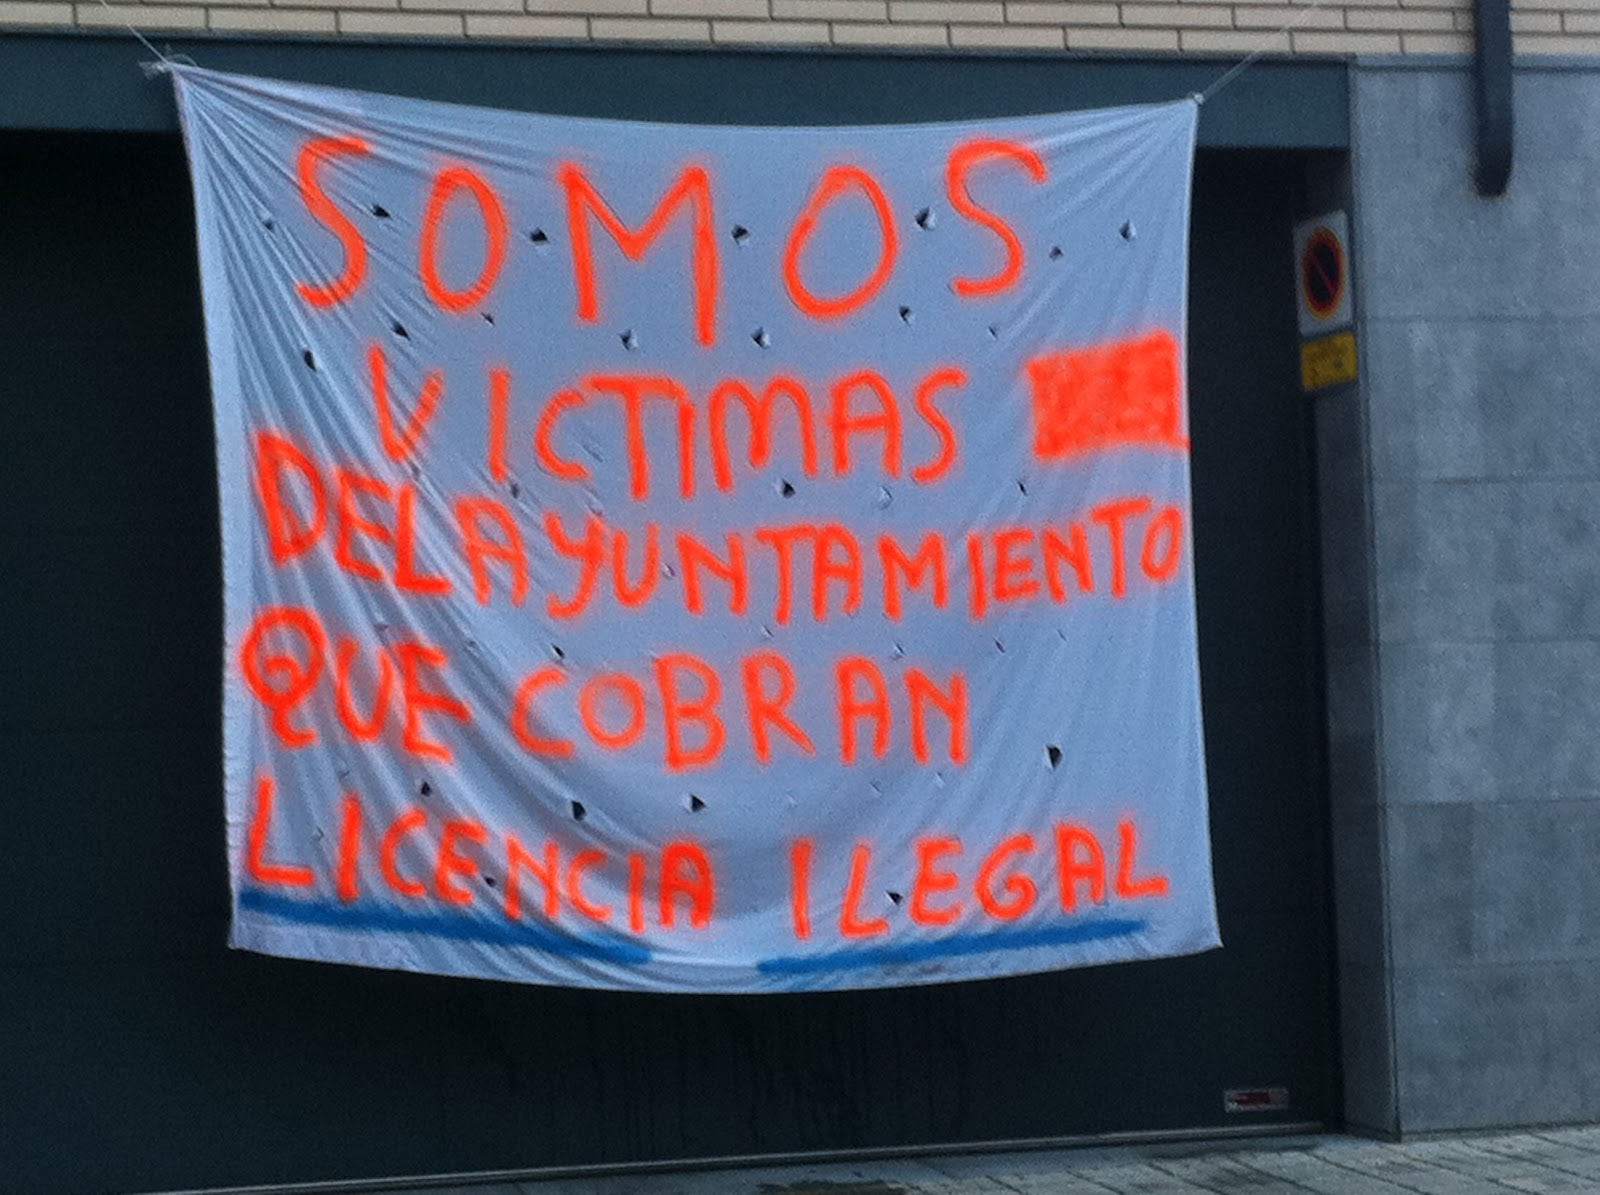 SOMOS
VICTIMAS
DEL AYUNTAMIENTO
QUE COBRAN
LICENCIA ILEGAL